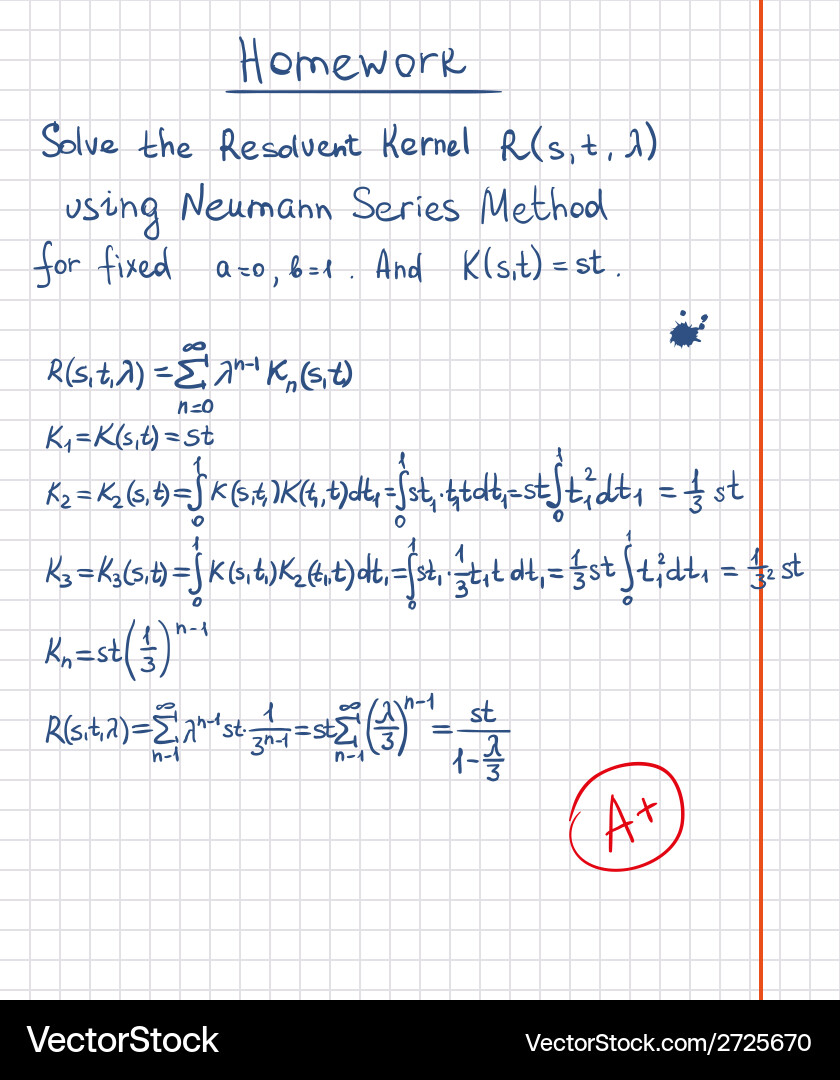 Homework
Solve the Resolvent Kernel R(s, t, λ)
using Neumann Series Method
for fixed a=0, b=1. And K(s,t) = st.
R(s,t,λ) = ∑_{n=0}^{∞} λ^{n-1} K_n(s,t)
K₁ = K(s,t) = st
K₂ = K₂(s,t) = ∫₀¹ K(s,t₁)K(t₁,t)dt₁ = ∫₀¹ st₁·t₁tdt₁ = st∫₀¹ t₁² dt₁ = 1/3 st
K₃ = K₃(s,t) = ∫₀¹ K(s,t₁)K₂(t₁,t)dt₁ = ∫₀¹ st₁·1/3 t₁t dt₁ = 1/3 st ∫₀¹ t₁² dt₁ = 1/3² st
K_n = st(1/3)^{n-1}
R(s,t,λ) = ∑_{n-1}^{∞} λ^{n-1} st·1/3^{n-1} = st∑_{n-1}^{∞} (λ/3)^{n-1} = st/(1-λ/3)
A+
VectorStock VectorStock.com/2725670